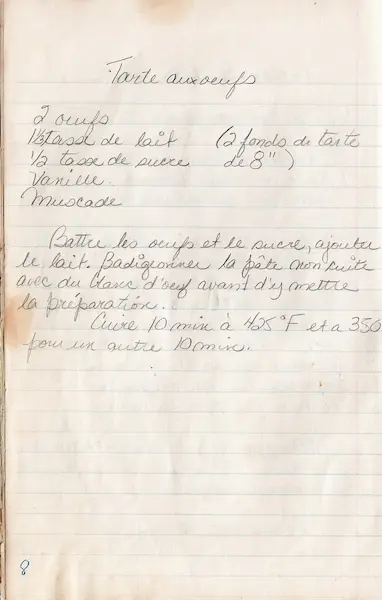 Tarte aux oeufs
2 oeufs
1½ tasse de lait (2 fonds de tarte
½ tasse de sucre de 8")
Vanille
Muscade
Battre les oeufs et le sucre, ajouter
le lait. Badigeonner la pâte non cuite
avec du blanc d'oeuf avant d'y mettre
la préparation.
Cuire 10 min à 425°F et a 350
pour un autre 10 min.
8